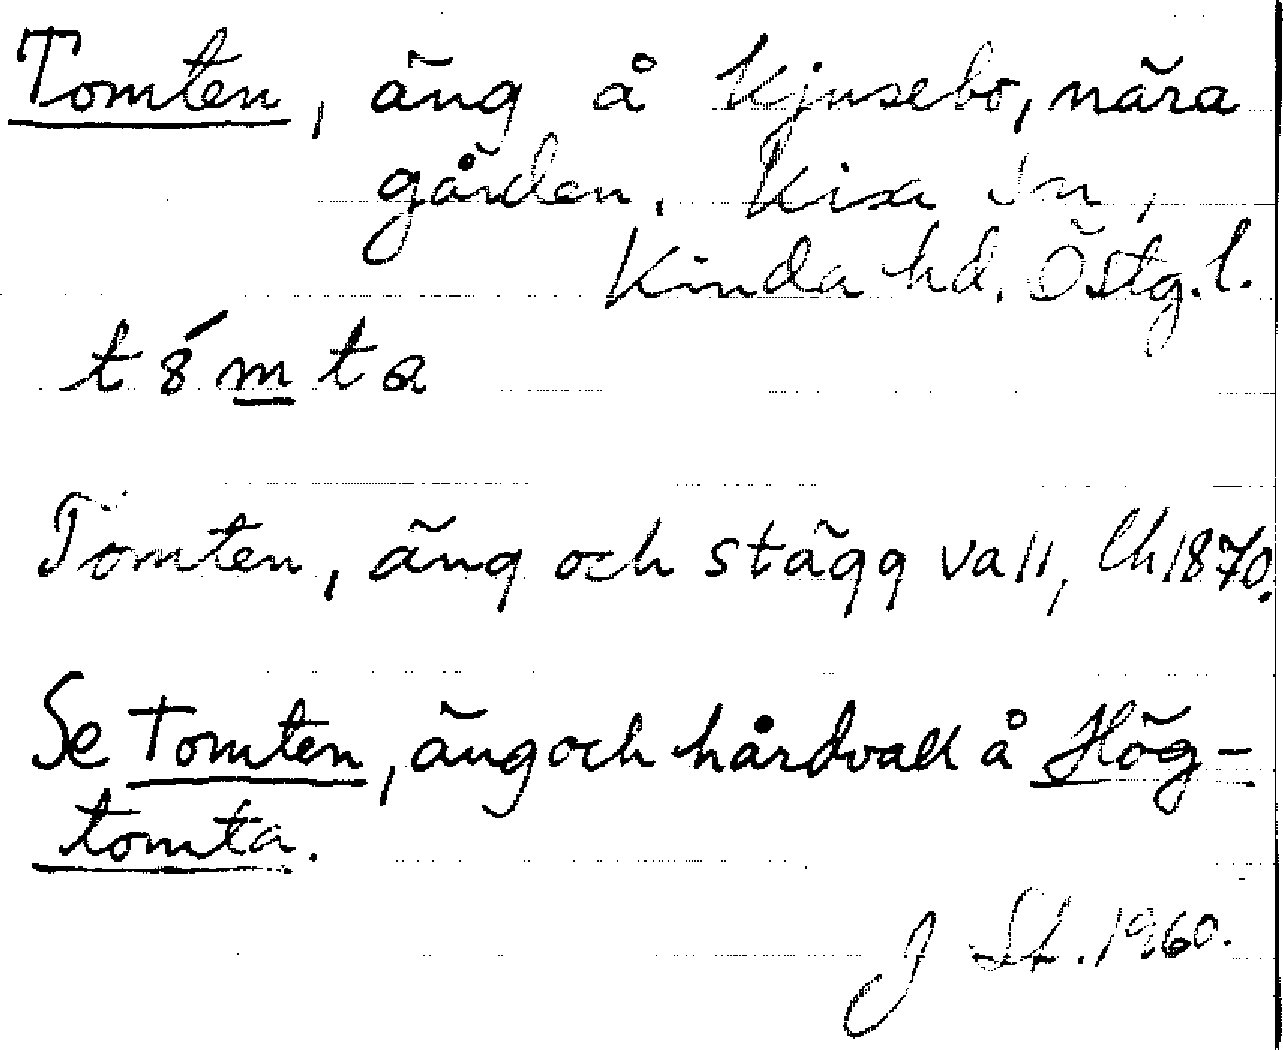 Tomten, äng å Kjusebo, nära
gården. Kisa sn,
Kinda hd. Östg.l.
t8́mta
Tomten, äng och stägg vall, Lh 1870.
Se Tomten, äng och hårdvall å Hög-
tomta.
J St. 1960.